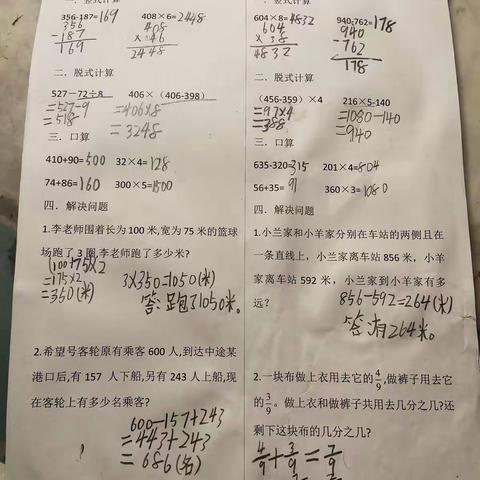 356-187=169 408×6=2448
356
-187
169
408
× 6
2448
二. 脱式计算
527－72÷8 406×（406-398）
=527-9 =406×8
=518 =3248
三. 口算
410+90=500 32×4=128
74+86=160 300×5=1500
四. 解决问题
1.李老师围着长为 100 米,宽为 75 米的篮球
场跑了 3 圈,李老师跑了多少米?
(100+75)×2
=175×2 3×350=1050(米)
=350(米) 答:跑了1050米。
2.希望号客轮原有乘客 600 人,到达中途某
港口后,有 157 人下船,另有 243 人上船,现
在客轮上有多少名乘客?
600-157+243
=443+243
=686(名)
604×8=4832 940-762=178
604
× 8
4832
940
-762
178
二. 脱式计算
（456-359）×4 216×5-140
=97×4 =1080-140
=388 =940
三. 口算
635-320=315 201×4=804
56+35=91 360×3=1080
四. 解决问题
1.小兰家和小羊家分别在车站的两侧且在
一条直线上，小兰家离车站 856 米，小羊
家离车站 592 米，小兰家到小羊家有多
远?
856-592=264(米)
答:有264米。
2.一块布做上衣用去它的4/9,做裤子用去它
的3/9。做上衣和做裤子共用去几分之几?还
剩下这块布的几分之几?
4/9+3/9=7/9